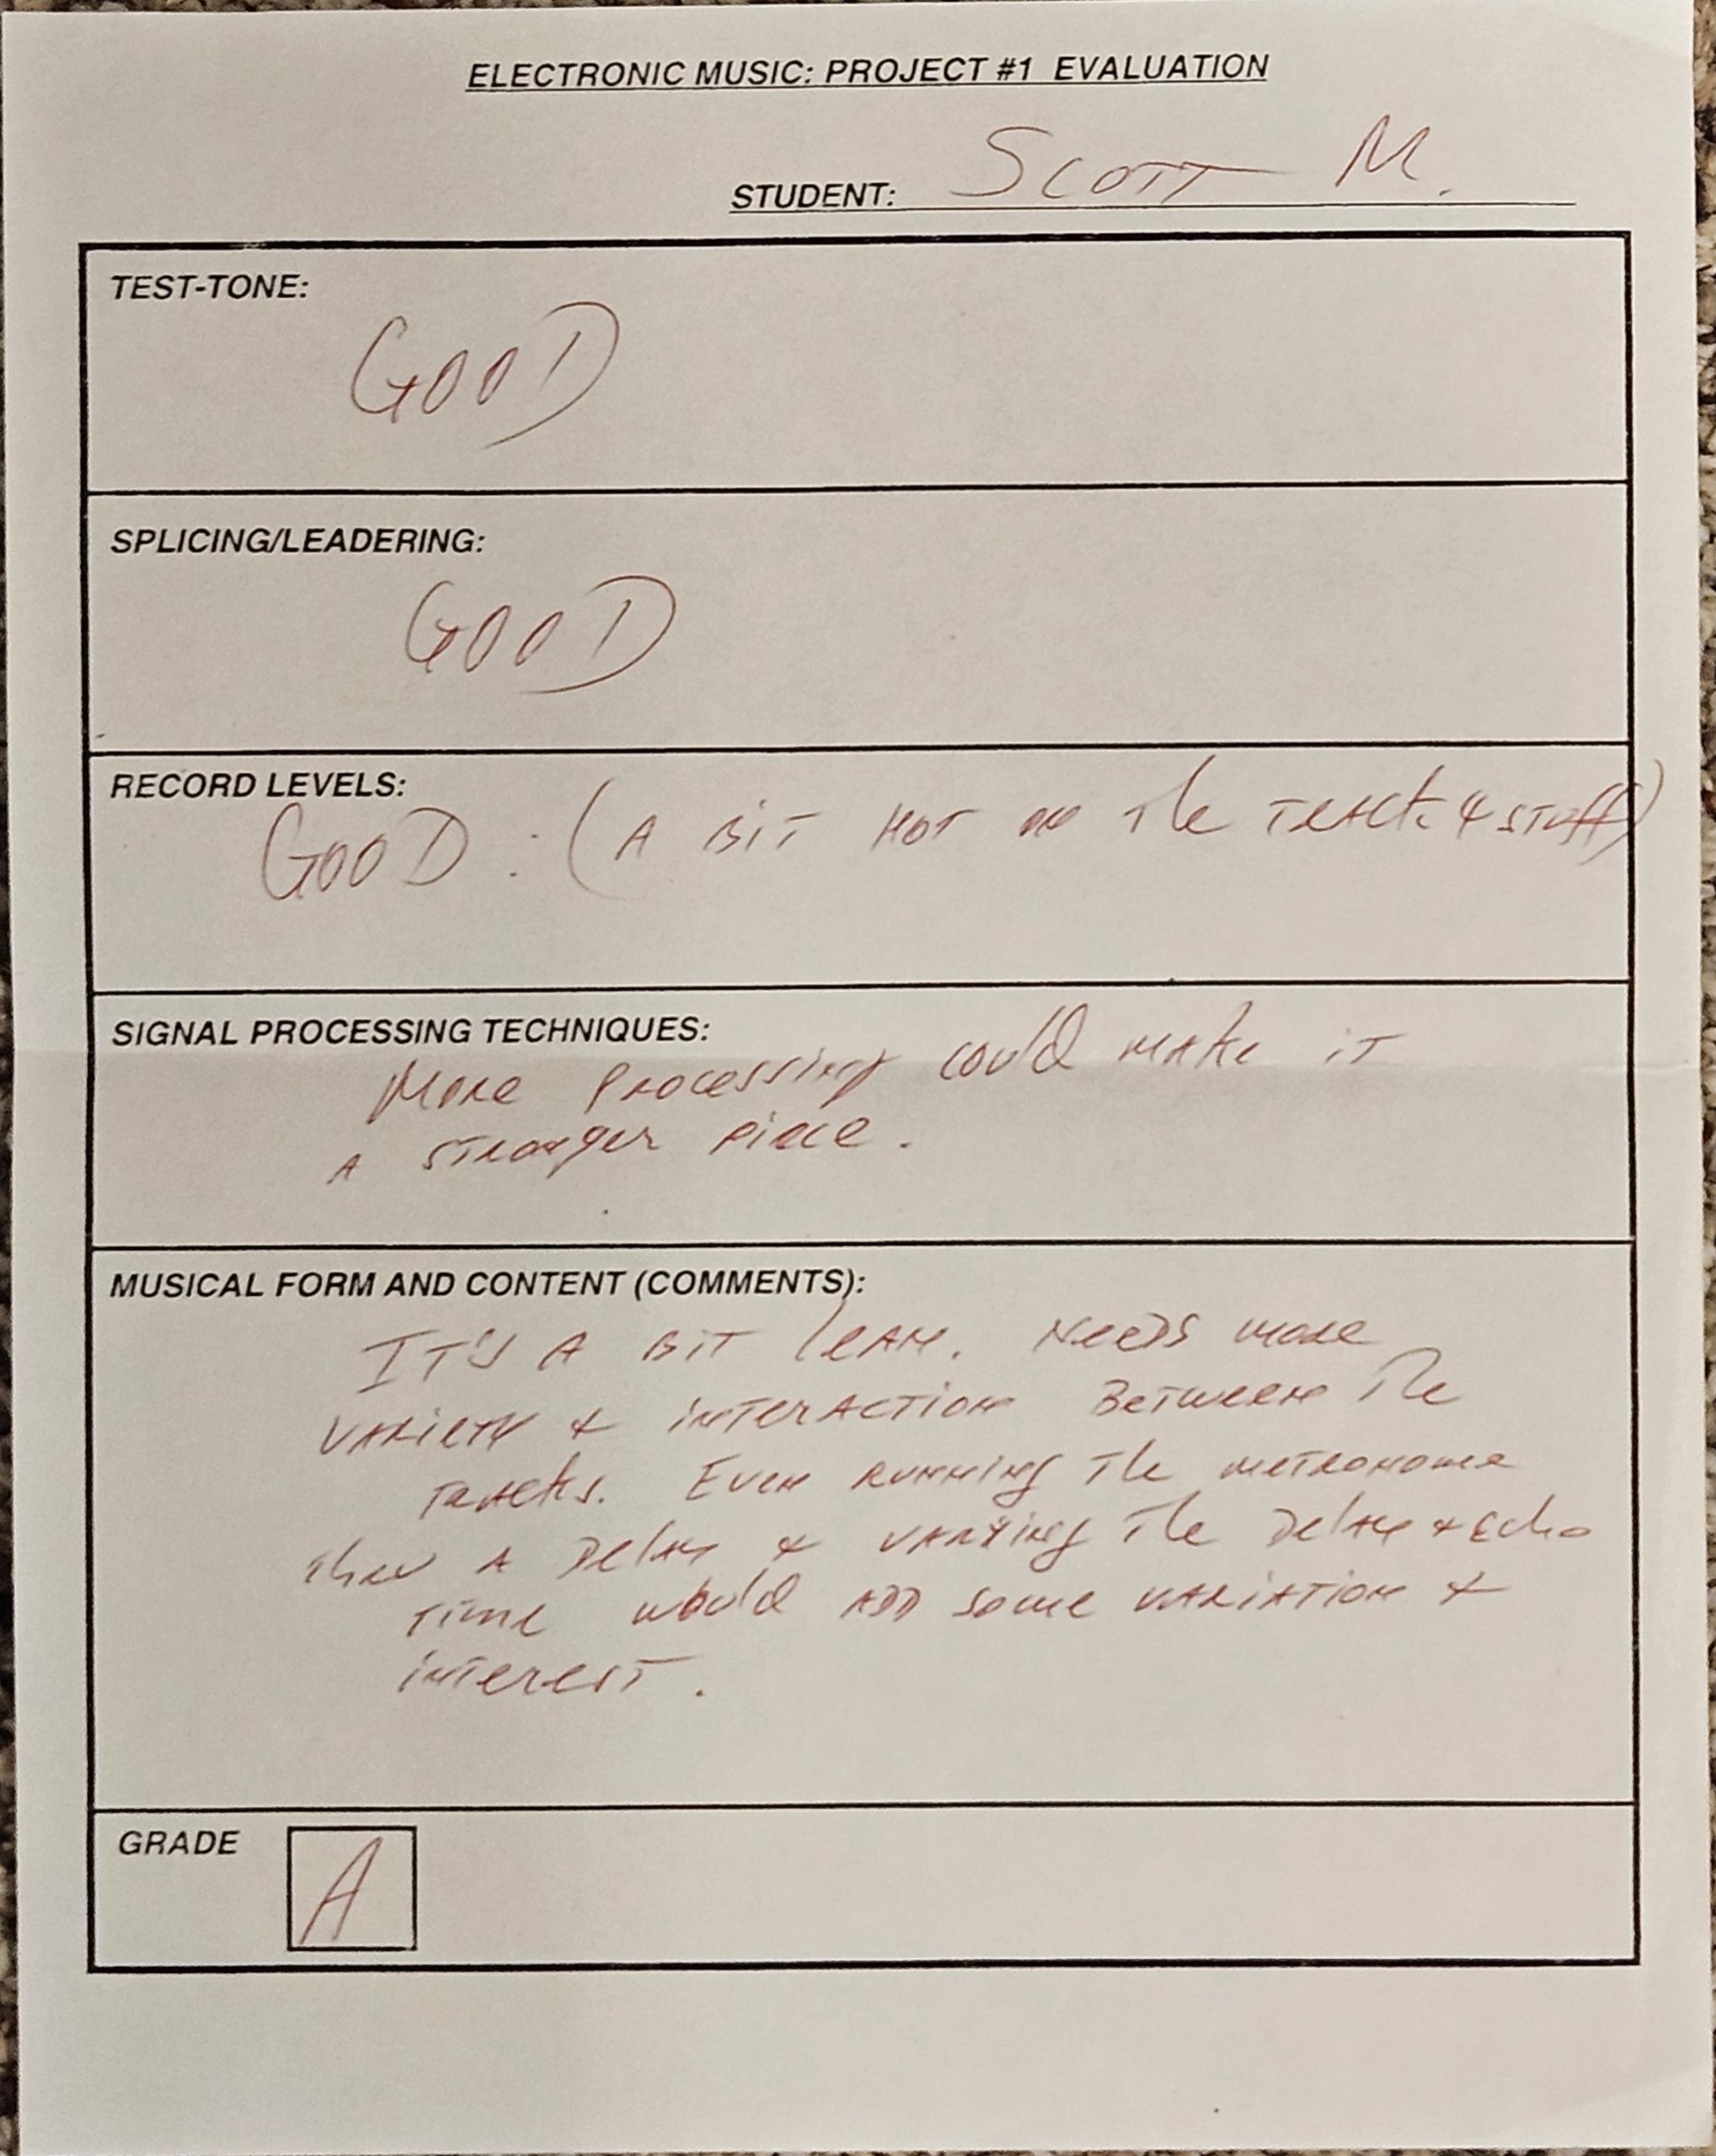 ELECTRONIC MUSIC: PROJECT #1 EVALUATION
STUDENT: SCOTT M.
TEST-TONE:
GOOD
SPLICING/LEADERING:
GOOD
RECORD LEVELS:
GOOD : (A BIT HOT ON THE TRACK 4 STUFF)
SIGNAL PROCESSING TECHNIQUES:
MORE PROCESSING COULD MAKE IT
A STRONGER PIECE.
MUSICAL FORM AND CONTENT (COMMENTS):
IT'S A BIT LEAN. NEEDS MORE
VARIETY & INTERACTION BETWEEN THE
TRACKS. EVEN RUNNING THE METRONOME
THRU A DELAY & VARYING THE DELAY & ECHO
TIME WOULD ADD SOME VARIATION &
INTEREST.
GRADE A